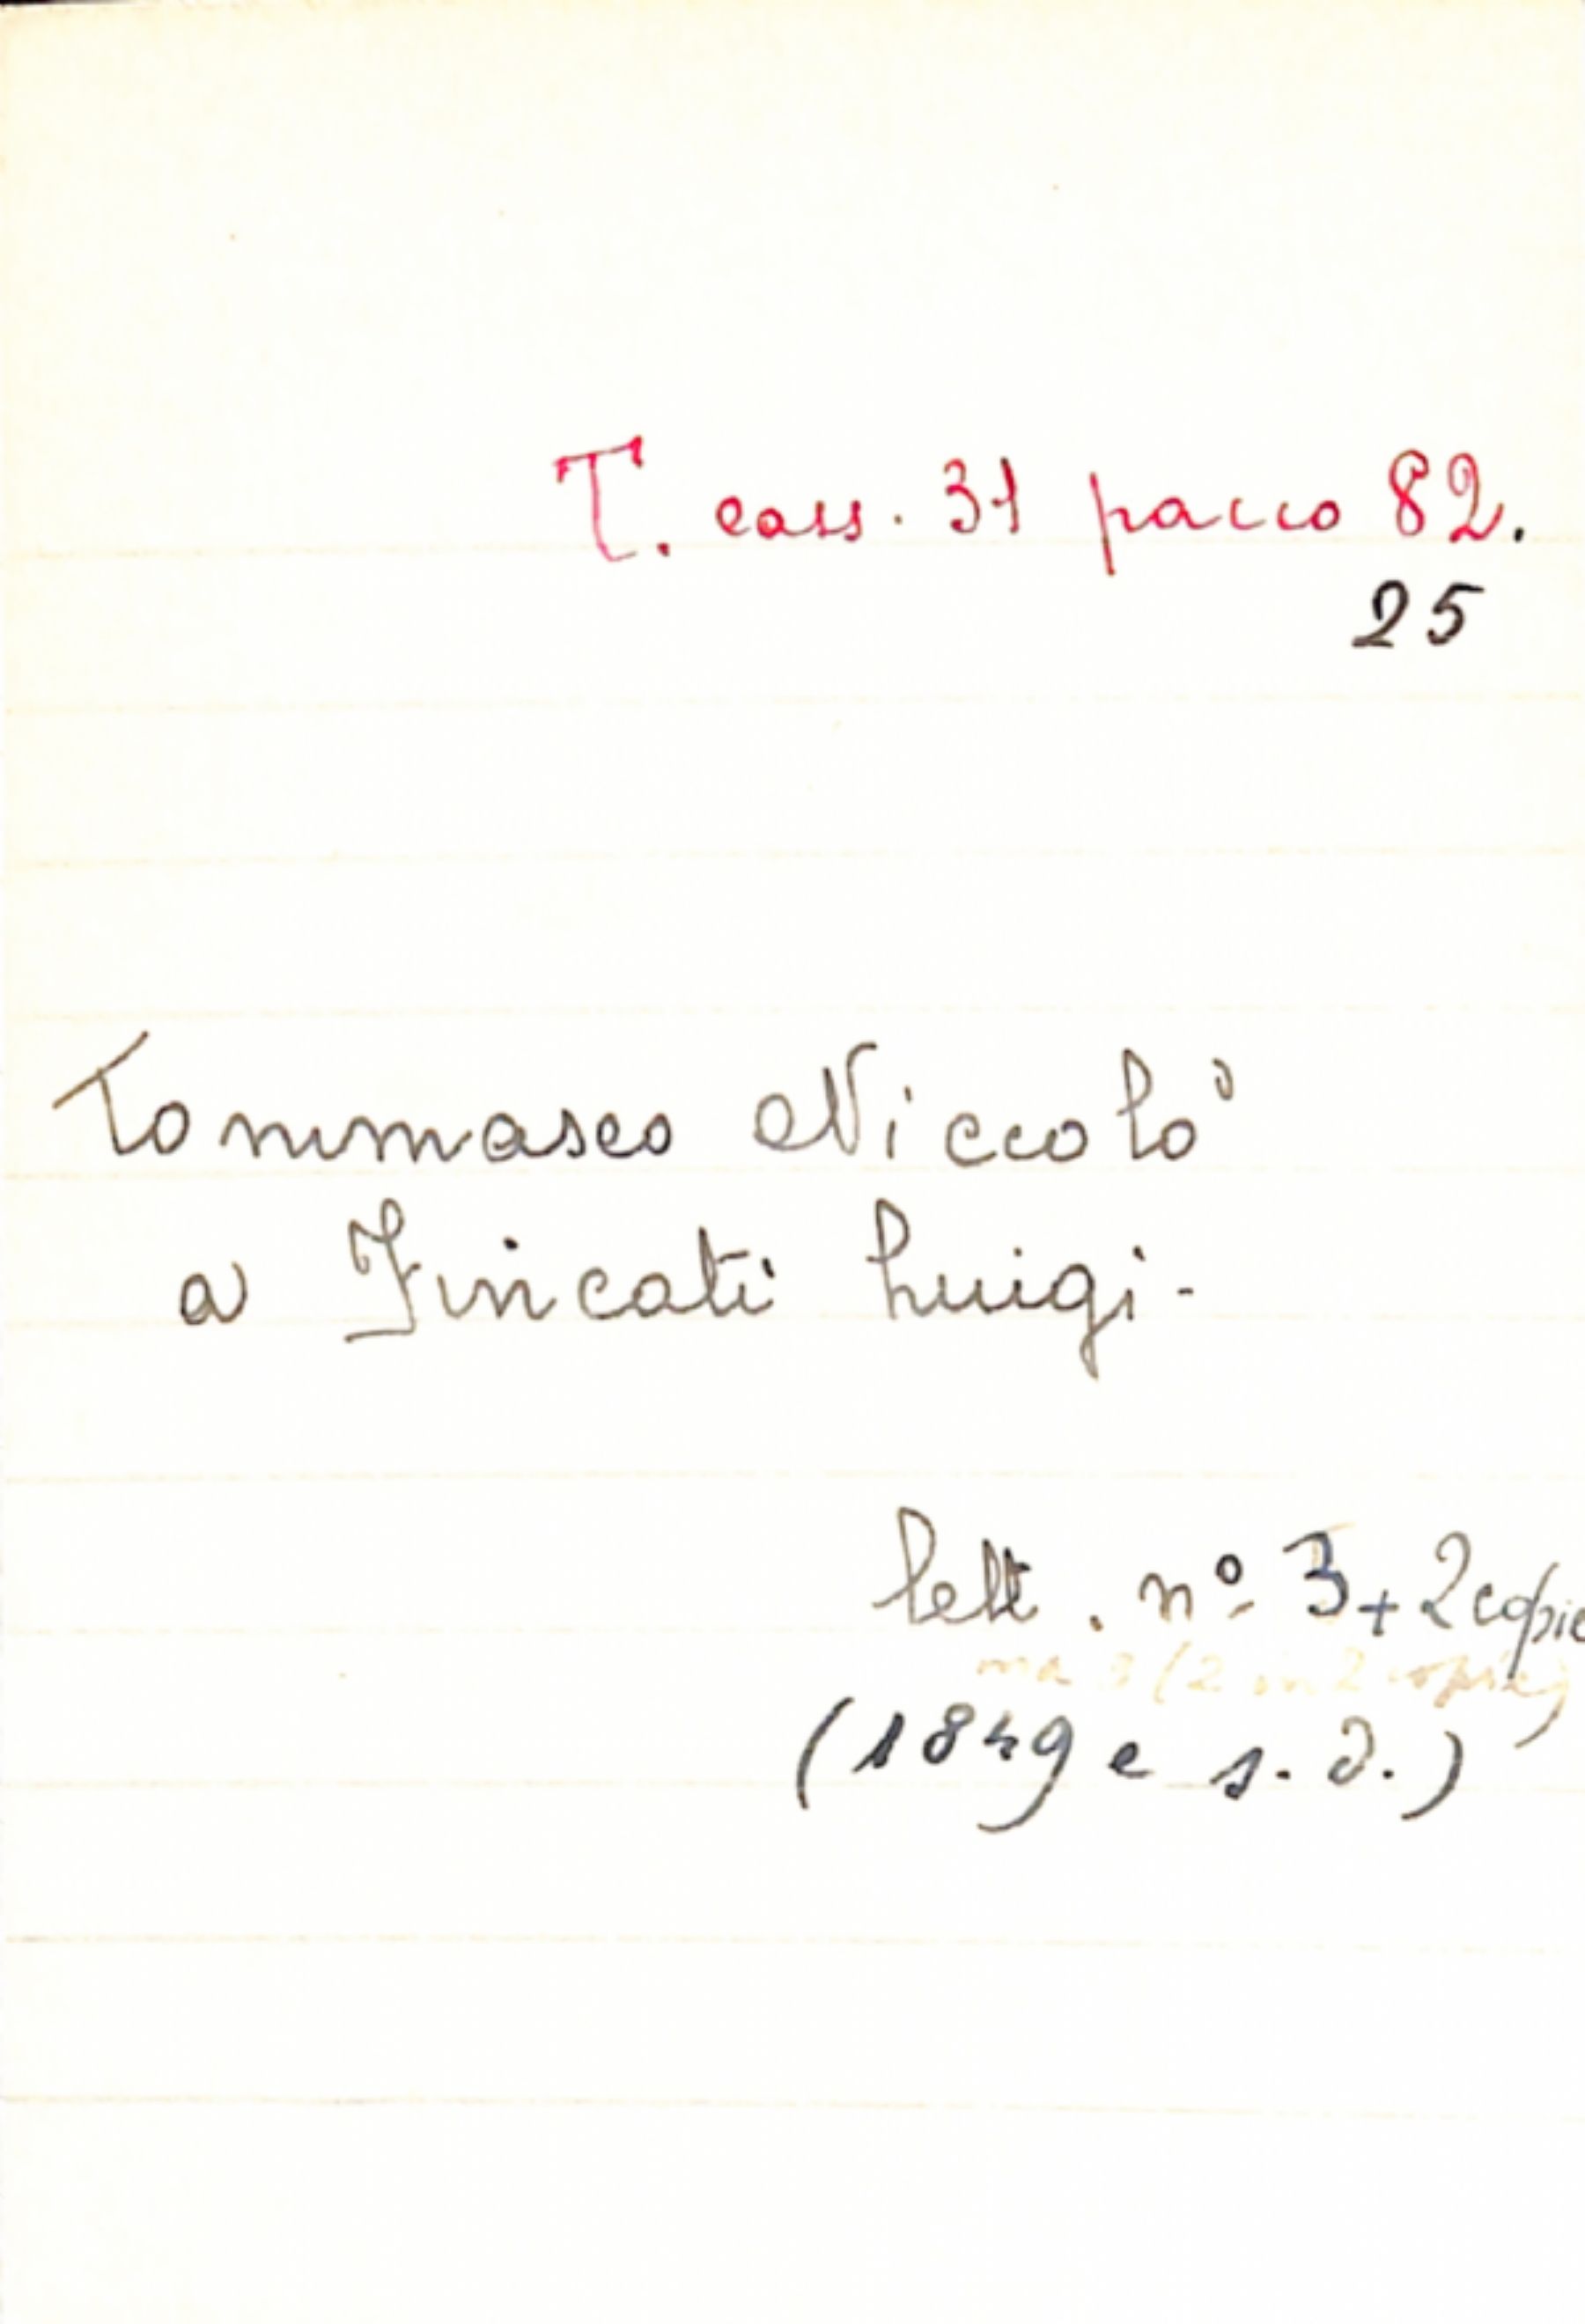 T. cass. 31 pacco 82.
25
Tommaseo Niccolò
a Fincati Luigi.
lett. nº 3 + 2 copie
ma 3 (2 in 2 copie)
(1849 e s.d.)